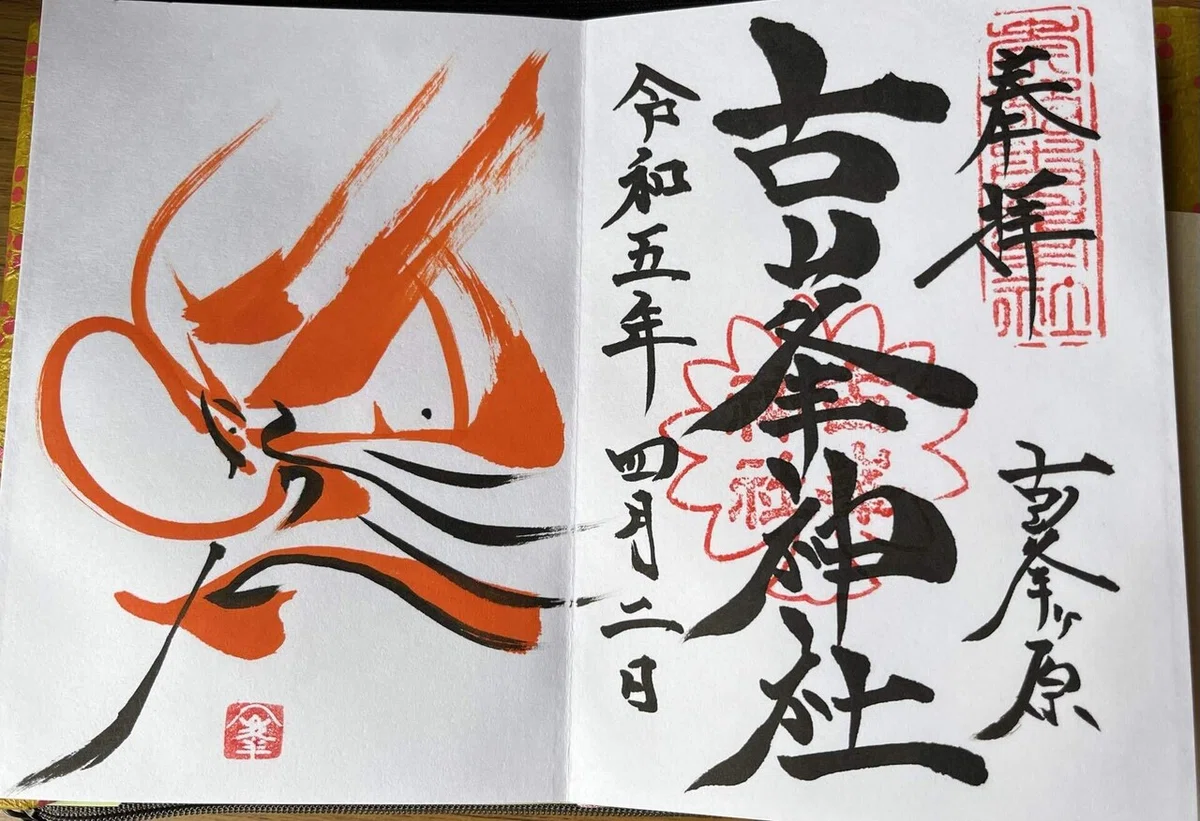 奉拝
古峯ヶ原
古峯神社
古峯
神社
令和五年 四月二日